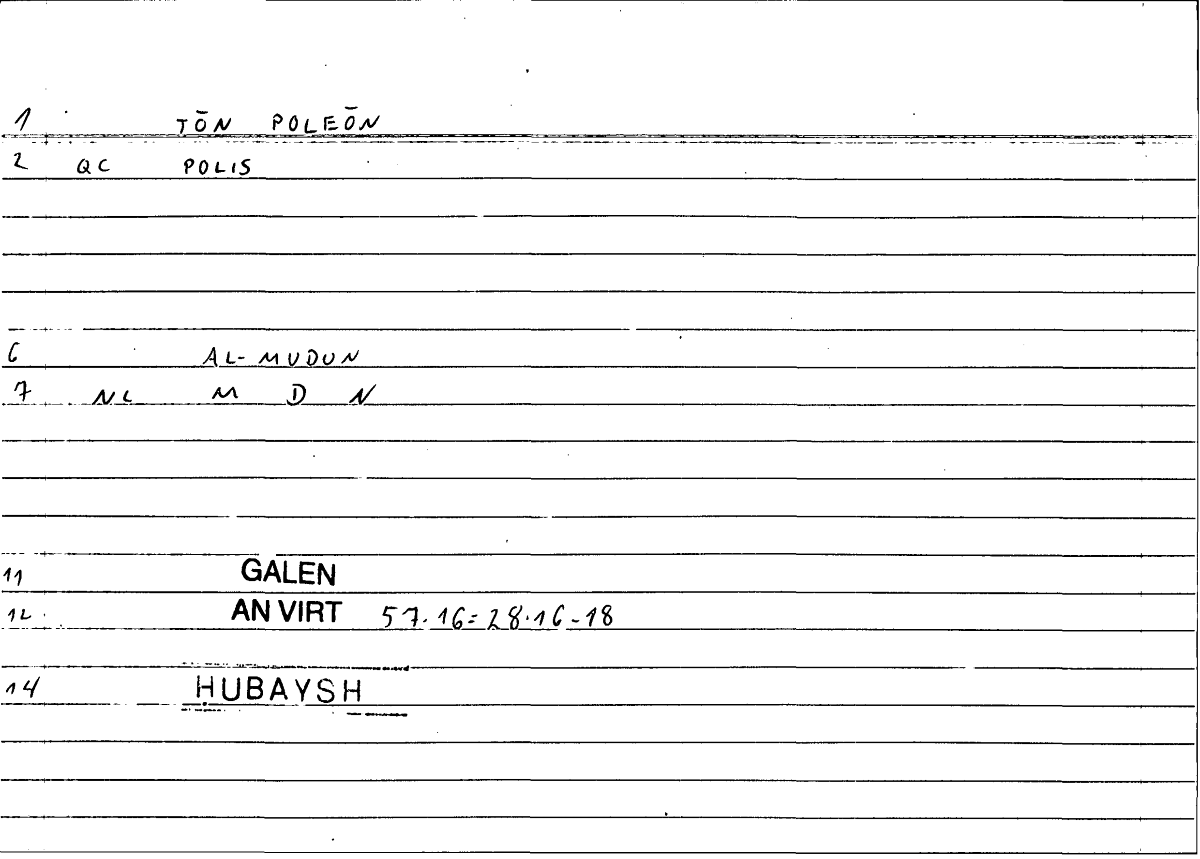 1 TŌN POLEŌN
2 QC POLIS
6 AL-MUDUN
7 NL M D N
11 GALEN
12 AN VIRT 57.16=28.16-18
14 HUBAYSH